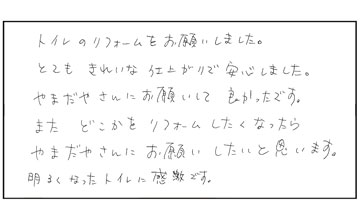 トイレのリフォームをお願いしました。
とても きれいな 仕上がりで 安心しました。
やまだやさんにお願いして 良かったです。
また どこかを リフォーム したくなったら
やまだやさんに お願い したいと思います。
明るくなったトイレに 感激です。